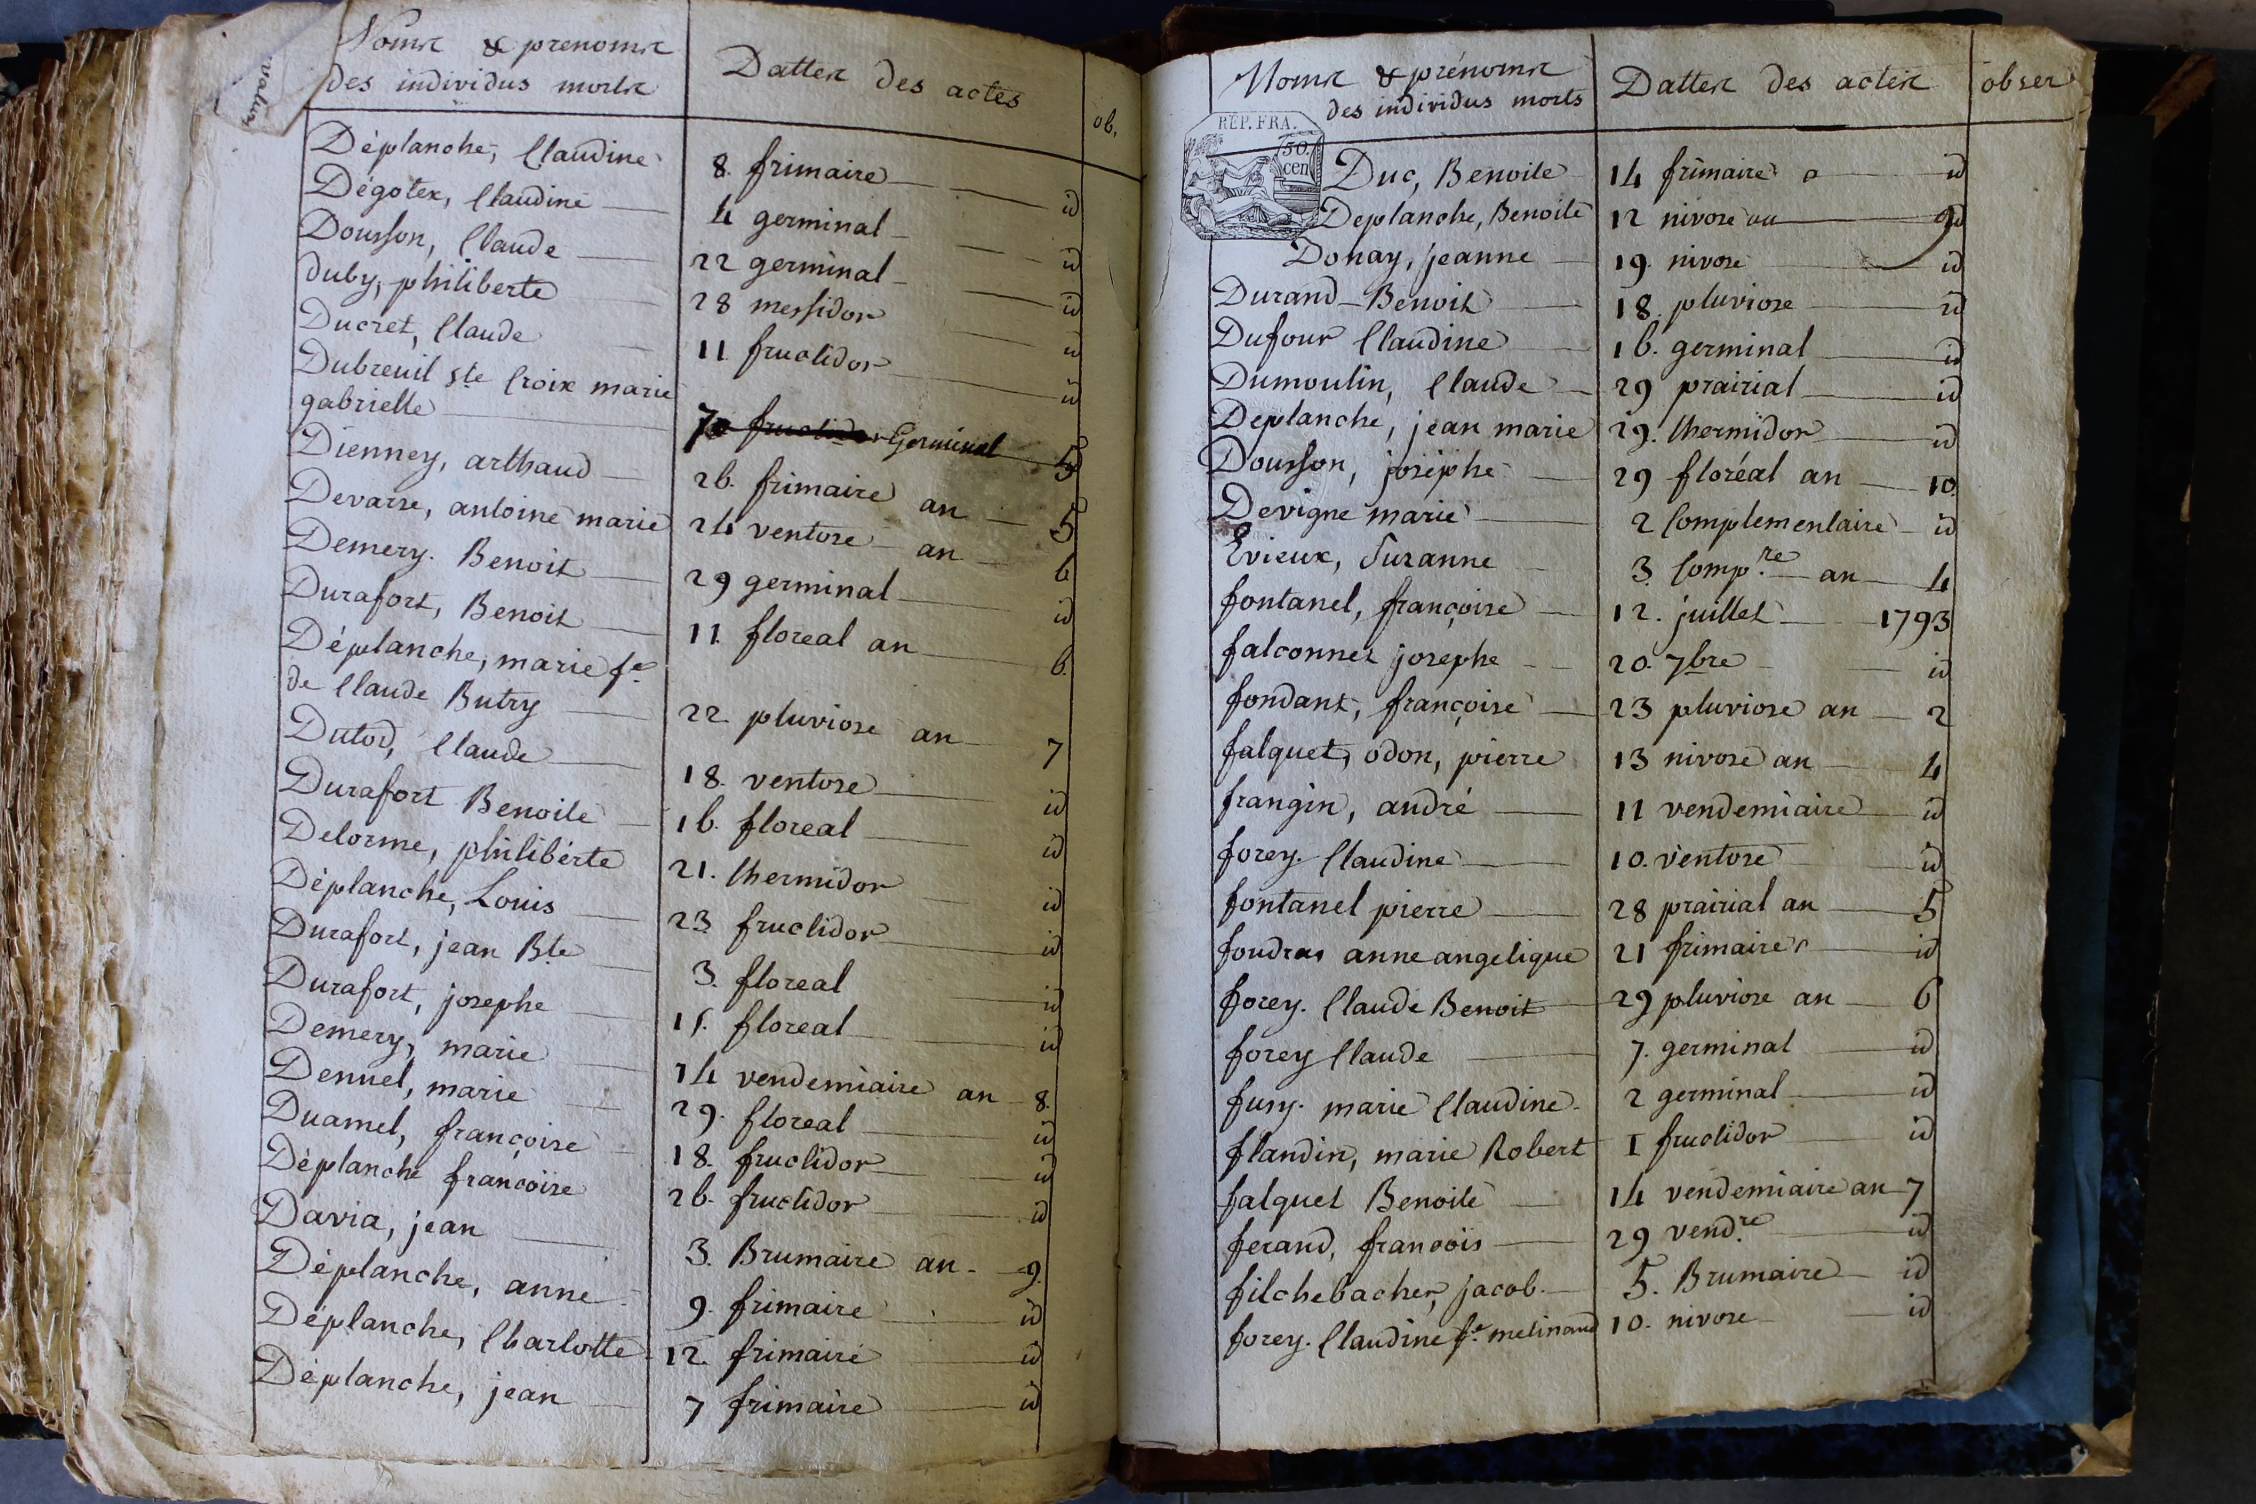 Noms & prenoms
des individus morts
Dattes des actes
ob.
Déplanche, Claudine 8. frimaire id
Dégotex, Claudine 4 germinal id
Dousson, Claude 22 germinal id
duby, philiberte 28 messidor id
Ducret, Claude 11 fructidor id
Dubreuil ste Croix marie
gabrielle 7 Germinal 5
Dienney, arthaud 26. frimaire an 5
Devarre, antoine marie 24 ventose an 6
Demery. Benoit 29 germinal id
Durafort, Benoit 11. floreal an 6.
Déplanche, marie fe
de Claude Butry 22 pluviose an 7
Dutod, Claude 18. ventose id
Durafort Benoite 16. floreal id
Delorme, philibérte 21. thermidor id
Déplanche, Louis 23 fructidor id
Durafort, jean Bte 3. floreal id
Durafort, josephe 15. floreal id
Demery, marie 14 vendemiaire an 8.
Dennel, marie 29. floreal id
Duamel, françoise 18. fructidor id
Déplanche françoise 26. fructidor id
Davia, jean 3. Brumaire an 9.
Déplanche, anne 9. frimaire id
Déplanche, Charlotte 12. frimaire id
Déplanche, jean 7 frimaire id
Noms & prénoms
des individus morts
Dattes des actes
obser
RÉP. FRA.
50.
cen
Duc, Benoite 14 frimaire id
Deplanche, Benoite 12 nivose an 9
Donay, jeanne 19. nivose id
Durand Benoit 18. pluviose id
Dufour Claudine 16. germinal id
Dumoulin, Claude 29 prairial id
Deplanche, jean marie 29. thermidor id
Dousson, josephe 29 floréal an 10.
Devigne marie 2 Complementaire id
Evieux, Suzanne 3. Comp.re an 4
fontanel, françoise 12. juillet 1793
falconnet josephe 20. 7bre id
fondant, françoise 23 pluviose an 2
falquet, odon, pierre 13 nivose an 4
frangin, andré 11 vendemiaire id
forey. Claudine 10. ventose id
fontanel pierre 28 prairial an 5
foudras anne angelique 21 frimaire id
forey. Claude Benoit 29 pluviose an 6
forey Claude 7. germinal id
fusy. marie Claudine 2 germinal id
flandin, marie Robert 1 fructidor id
falquet Benoite 14 vendemiaire an 7
ferand, francois 29 vend.re id
filchebacher, jacob. 5. Brumaire id
forey. Claudine fe. melinand 10. nivose id